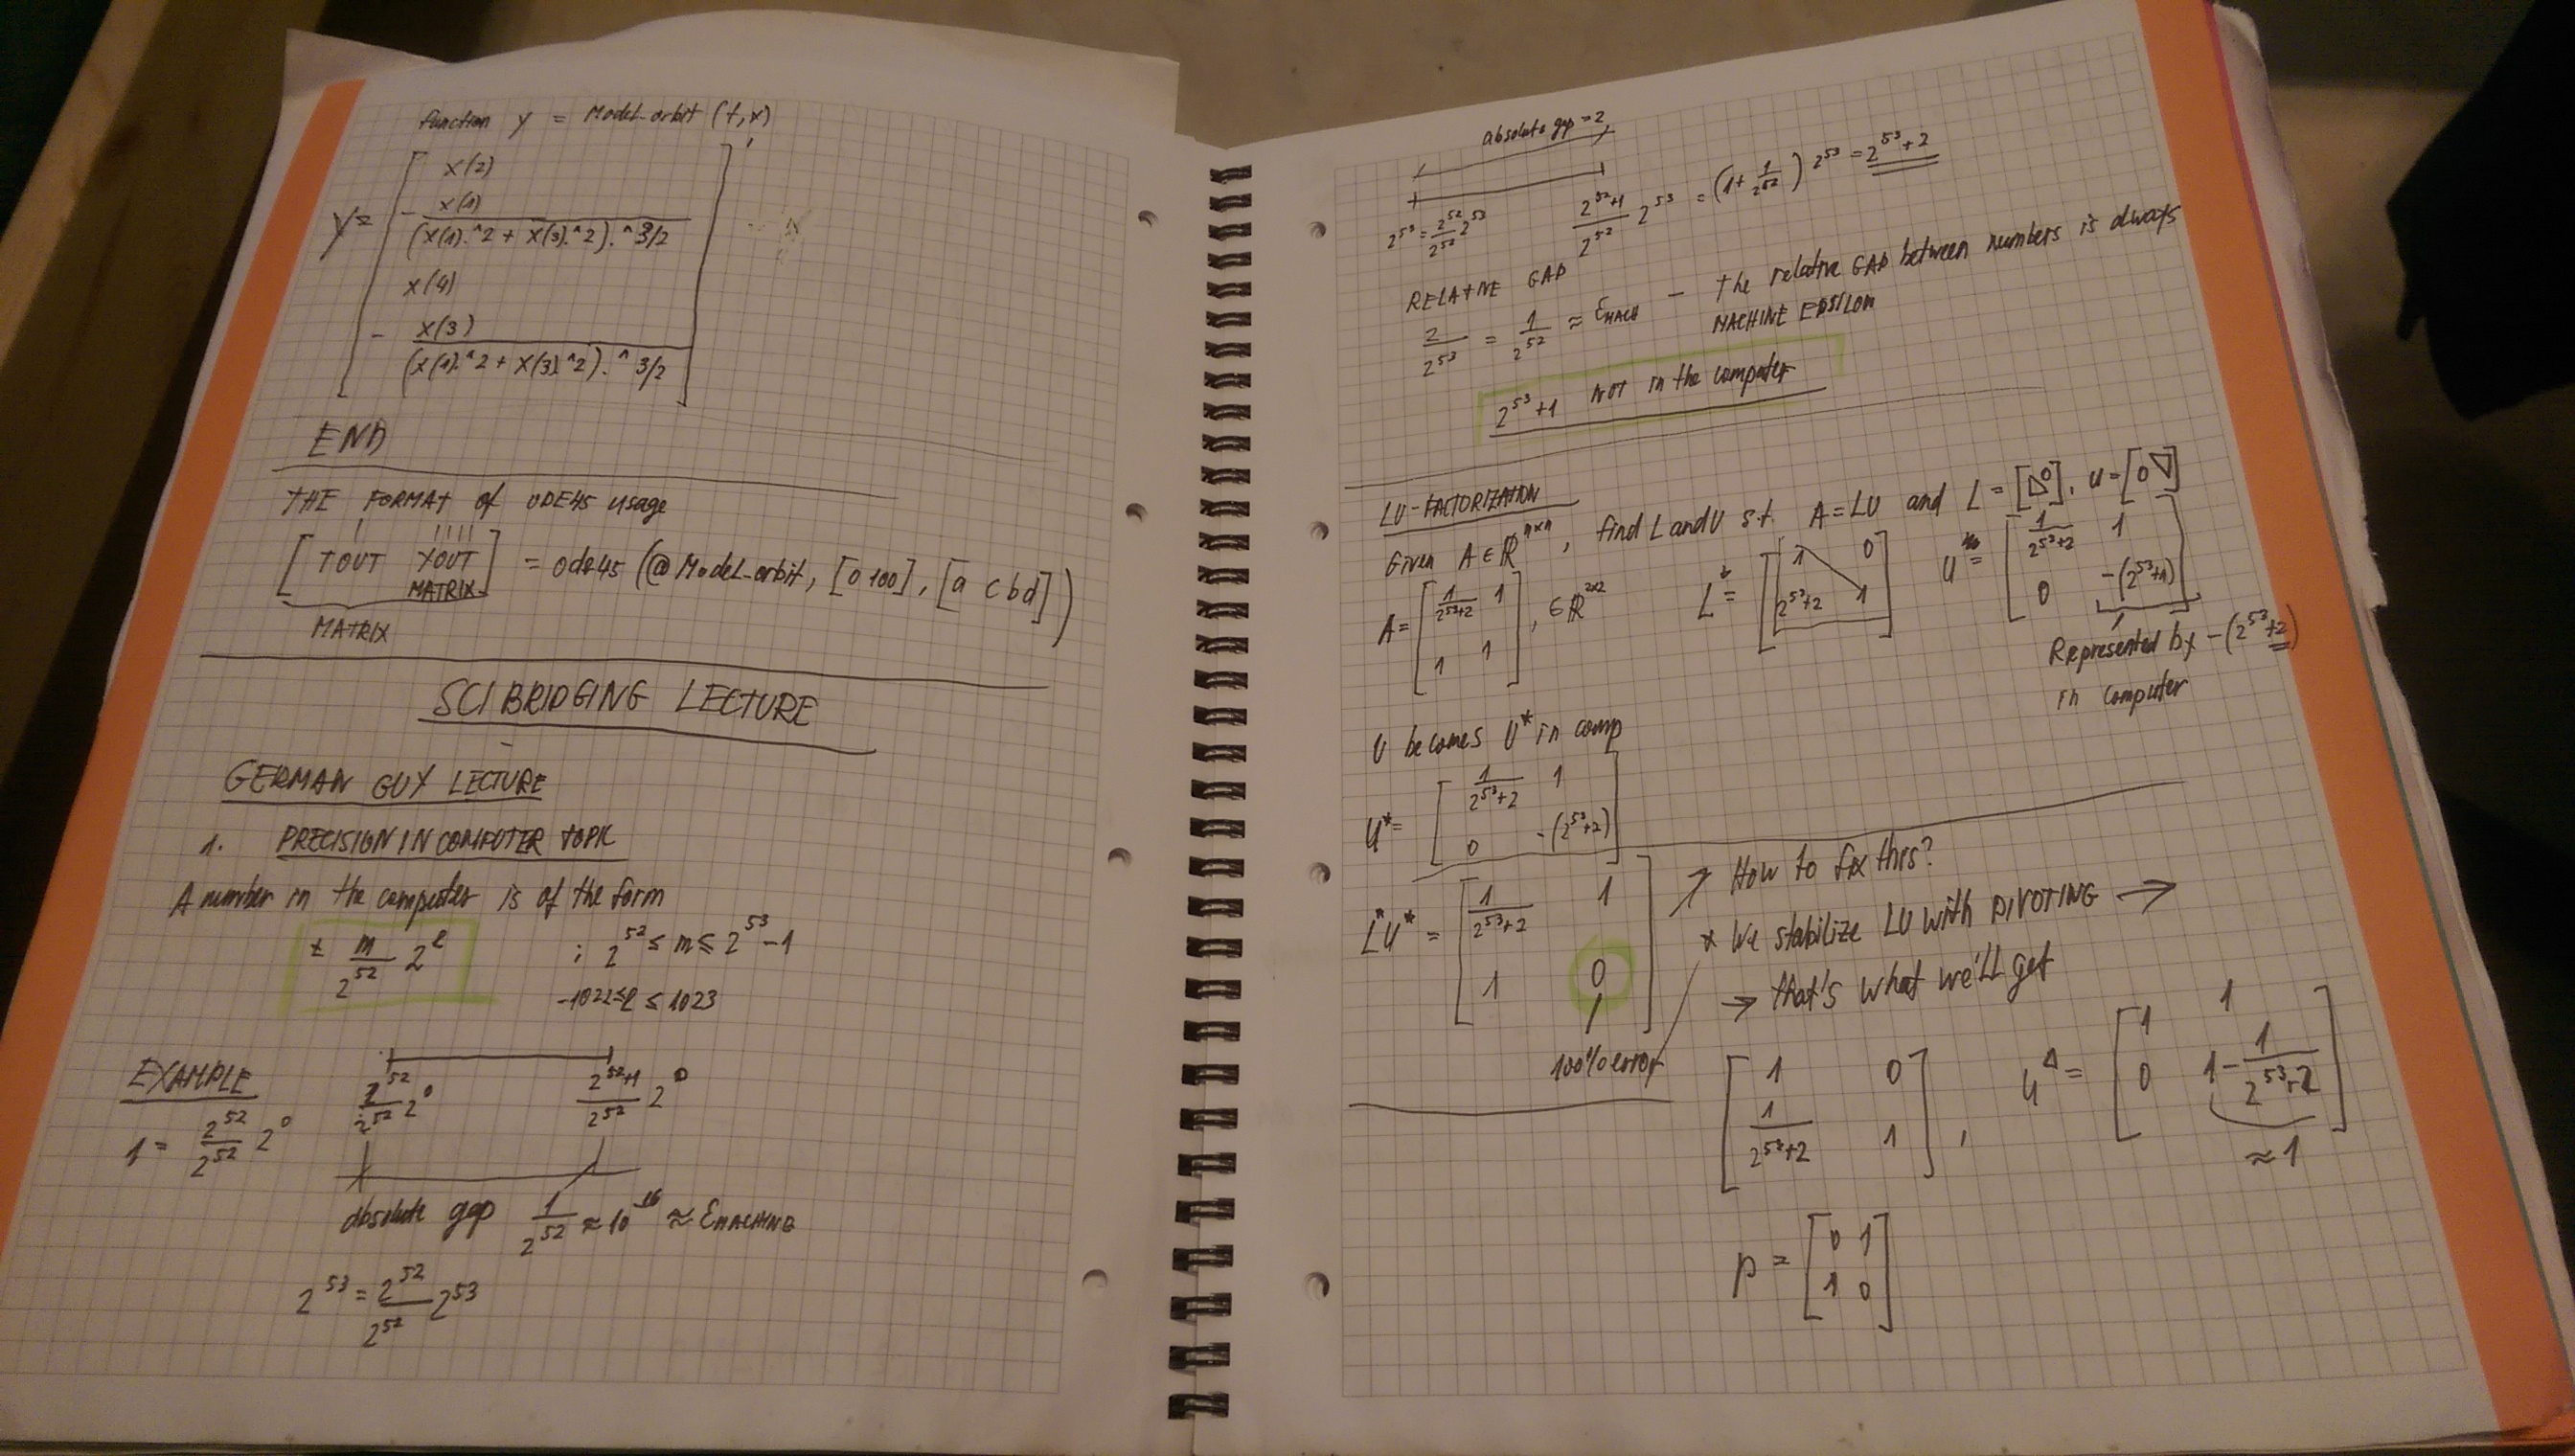 function y = Model_orbit (t,x)
y = [ x(2)
- x(1) / (x(1).^2 + x(3).^2).^3/2
x(4)
- x(3) / (x(1).^2 + x(3).^2).^ 3/2 ]'
END
THE FORMAT of ODE45 usage
[TOUT YOUT] = ode45 (@Model_orbit, [0 100], [a c b d])
MATRIX
MATRIX
SCI BRIDGING LECTURE
GERMAN GUY LECTURE
1. PRECISION IN COMPUTER TOPIC
A number in the computer is of the form
± m/2^52 2^l ; 2^52 ≤ m ≤ 2^53 - 1
-1022 ≤ l ≤ 1023
EXAMPLE
1 = 2^52/2^52 2^0
2^52/2^52 2^0 2^52+1/2^52 2^0
absolute gap 1/2^52 ≈ 10^-16 ≈ εMACHINE
2^53 = 2^52/2^52 2^53
absolute gap = 2
2^53 = 2^52/2^52 2^53 2^52+1/2^52 2^53 = (1 + 1/2^52) 2^53 = 2^53+2
RELATIVE GAP
2/2^53 = 1/2^52 ≈ εMACH — the relative GAP between numbers is always
MACHINE EPSILON
2^53+1 NOT in the computer
LU-FACTORIZATION
Given A ∈ R^nxn, find L and U s.t. A = LU and L = [◺0], U = [0▽]
A = [1/2^53+2 1
1 1], ∈ R^2x2
L = [1 0
2^53+2 1]
U = [1/2^53+2 1
0 -(2^53+1)]
Represented by -(2^53+2)
in computer
U becomes U* in comp
U* = [1/2^53+2 1
0 -(2^53+2)]
L*U* = [1/2^53+2 1
1 0]
100% error
↗ How to fix this?
* We stabilize LU with PIVOTING →
→ that's what we'll get
[1 0
1/2^53+2 1],
U^Δ = [1 1
0 1 - 1/2^53+2]
≈ 1
P = [0 1
1 0]